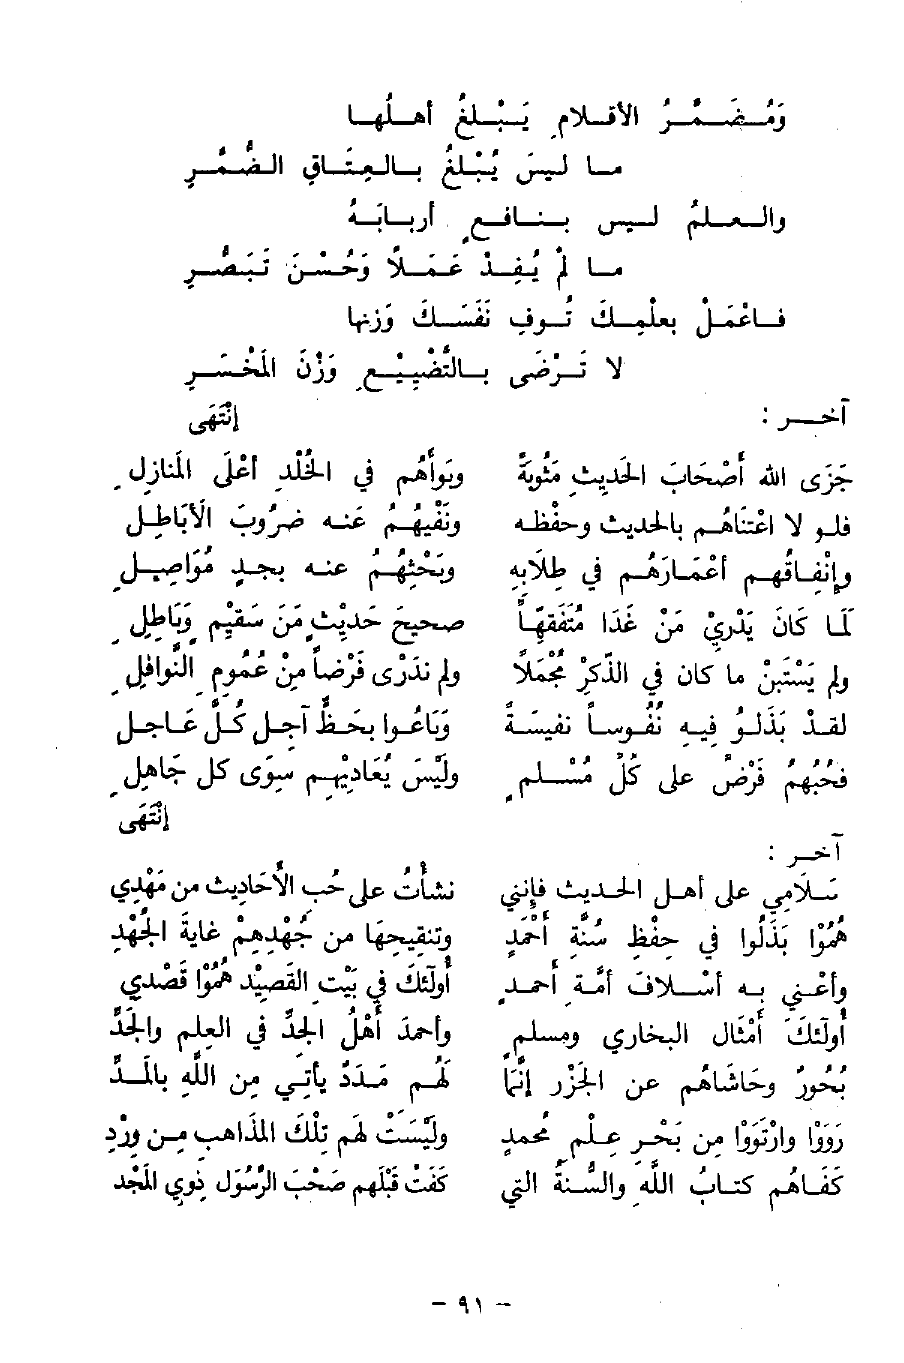 وَمُـضَـمَّـرُ الأقـلامِ يَـبْـلغُ أهـلُـهـا
مـا ليسَ يُبْلغُ بـالـعِتَـاقِ الـضُّـمَّـرِ
والـعـلمُ لـيس بـنـافـعٍ أربـابَـهُ
مـا لَمْ يُـفِـدْ عَـمَـلاً وَحُـسْـنَ تَـبَـصُّـرِ
فـاعْمَـلْ بعلْمِـكَ تُـوفِ نَفْسَـكَ وَزنها
لا تَـرْضَى بـالتَّضْيِيْـعِ وَزْنَ المُخْـسَـرِ
إنْتَهَى
آخـر :
جَزَى الله أَصْحَابَ الحَديثِ مَثُوبَةً وبَوأَهُم في الخُلْدِ أعْلَى المَنازِلِ
فلـو لا اعْتناهُـم بالحديث وحفْظه ونَفْيهُـمُ عَنـه ضرُوبَ الأَبَاطِـلِ
وإنْفـاقُهم أعْمَـارَهُـم في طلابِه وبَحْثهُـمُ عنـه بجـدٍ مُوَاصِـلِ
لَمَـا كَانَ يَدْرِيْ مَنْ غَدَا مُتَفَقِّهاً صحيحَ حَديْثٍ مَنَ سَقيْمٍ وَبَاطِلِ
ولم يَسْتَبِنْ ما كان في الذّكْرِ مُجْمَلاً ولم نَدْرِ فَرْضاً مِنْ عُمُومِ النَّوافِلِ
لقـدْ بَذَلـوُ فيـه نُفُوسـاً نفيسَـةً وبَاعُـوا بحَـظٍّ آجِـلٍ كُـلَّ عَـاجـلِ
فحُبهُمُ فَرْضٌ على كُلِّ مُسْلـمٍ وليْسَ يُعَاديْهِـم سوَى كل جَاهِلِ
إنْتَهَى
آخـر :
سَـلَامِي على أهـل الحـديث فإنني نشـأتُ على حُب الأَحَاديث من مَهْدِي
هُمُوْا بَذَلُوا في حفْظ سُنَّة أحْمَدٍ وتنقيحها من جُهْدِهمْ غايةَ الجُهْدِ
وأعْـني بـه أسْـلافَ أمَّـة أحمـدٍ أُولَئِكَ في بَيْتِ القَصِيْدِ هُمُوْا قَصْدي
أُولَئِكَ أَمْثَال البخاري ومسلمٍ وأحمدَ أَهْلُ الجدِّ في العِلمِ والجَدِّ
بُحُورٌ وحَاشَاهُم عن الجَزْر إنَّما لَهُـم مَـدَدٌ يأتـي مِن اللَّهِ بالمَـدِّ
رَوَوْا وارْتَوَوْا من بَحْـرِ عِـلْمِ محمدٍ ولَيْسَتْ لهم تِلْكَ المذَاهب مـن وِرْدِ
كَفَاهُم كتابُ اللَّهِ والسُّنةُ التي كَفَتْ قَبْلهم صَحْبَ الرَّسُوْلِ ذَوي المَجْد
- ٩١ -